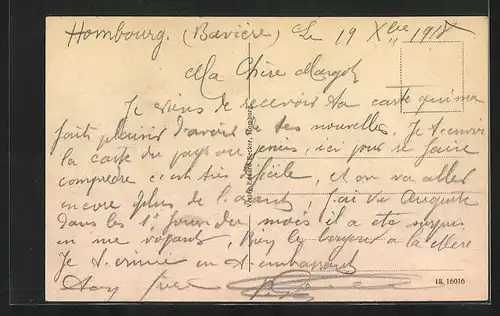 Hombourg. (Bavière) Le 19 Xbre 1918
Ma Chère Margot
Je viens de recevoir ta carte qui m'a
fait plaisir d'avoir de tes nouvelles. Je t'envoi
la carte du pays ou je suis, ici pour se faire
compredre c'est très dificile, et on va aller
encore plus de l'avant, j'ai vu Auguste
dans les 1er jours du mois il a ete surpris
en me voyant, Bien le bonjour a la Mère
Je t. en t. embrassant
Ton frère
18, 16016